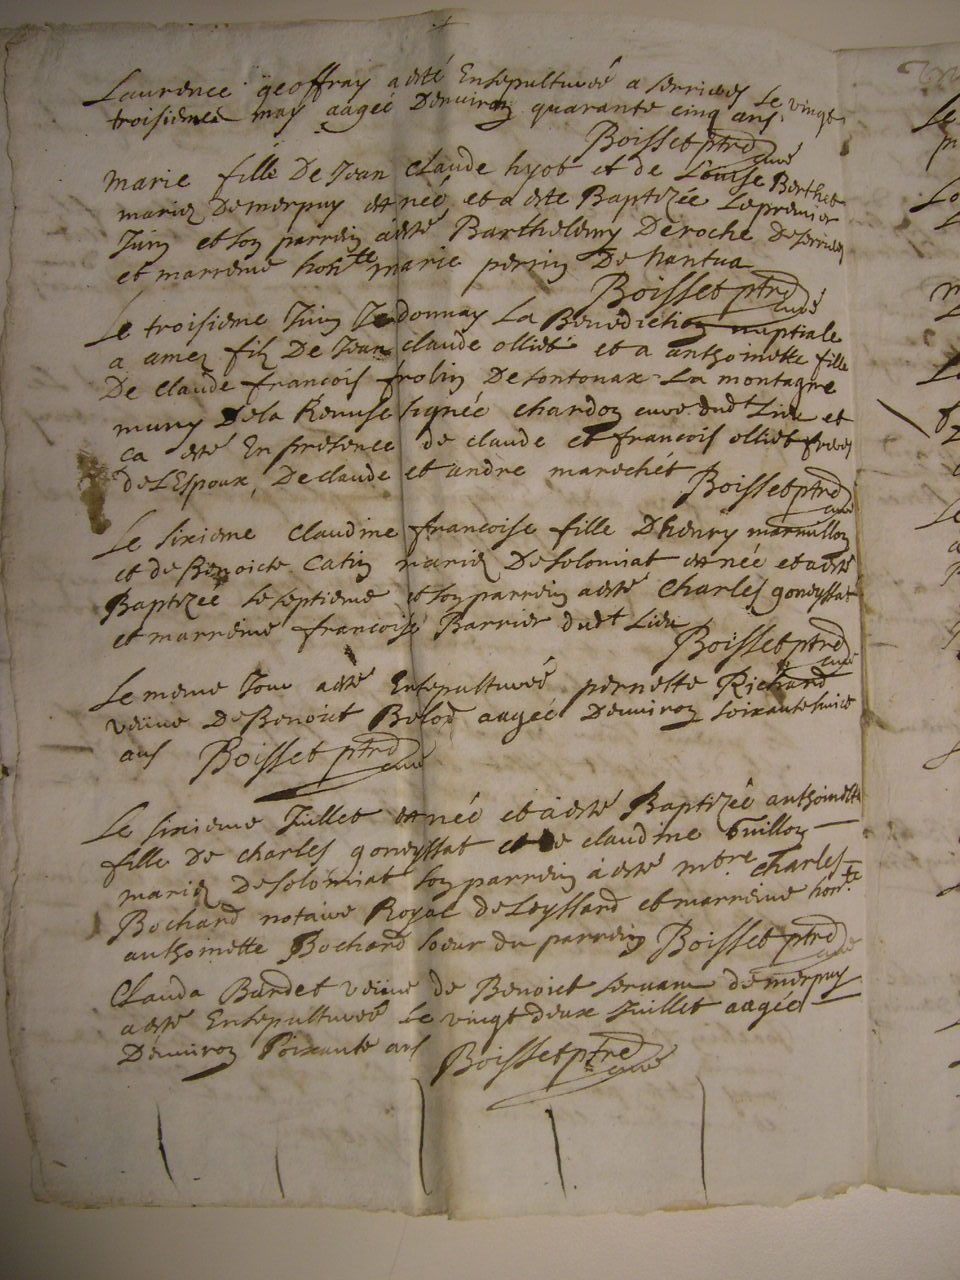 Laurence geoffray a esté Ensepulturéé a serrieres Le vingt
troisieme may aagée Denviron quarante cinq ans
Boisset ptre curé
marie fille De Jean claude hyot et de Louise Berthet
mariez Demerpuy est néé et a esté Baptizée Le premier
Juin et son parrein a esté Barthelemy Deroche De serrieres
et marreine hon.te marie perrin De Nantua
Boisset ptre curé
Le troisieme Juin Je donnay La Benediction nuptiale
a amez filz De Jean claude olliet et a anthoinette fille
De claude francois frobin De sontonax La montagne
muny De la Remise signéé chardon curé dudt Lieu et
ca esté En presence de claude et francois olliet freres
De LEspoux, De claude et andre marechet
Boisset ptre curé
Le sixieme claudine francoise fille Dhenry marmillon
et de Benoicte Catin mariez De solomiat est néé et a esté
Baptizéé Le septieme et son parrein a esté Charles goneyssat
et marreine francoise Barrier dudt Lieu
Boisset ptre curé
Le meme Jour a esté Ensepulturéé pernette Richard
veuve De Benoict Belod aagéé Denviron soixante huict
ans Boisset ptre curé
Le sixieme Juillet est néé et a esté Baptizéé anthoinette
fille De charles goneyssat et de claudine Guillon
mariez De solomiat son parrein a esté mtre charles
Bochard notaire Royal de Leyssard et marreine hon.te
anthoinette Bochard soeur du parrein Boisset ptre curé
Clauda Burdet veuve de Benoict servan demerpuy
a esté Ensepulturéé Le vingt deux Juillet aagéé
Denviron soixante ans Boisset ptre curé